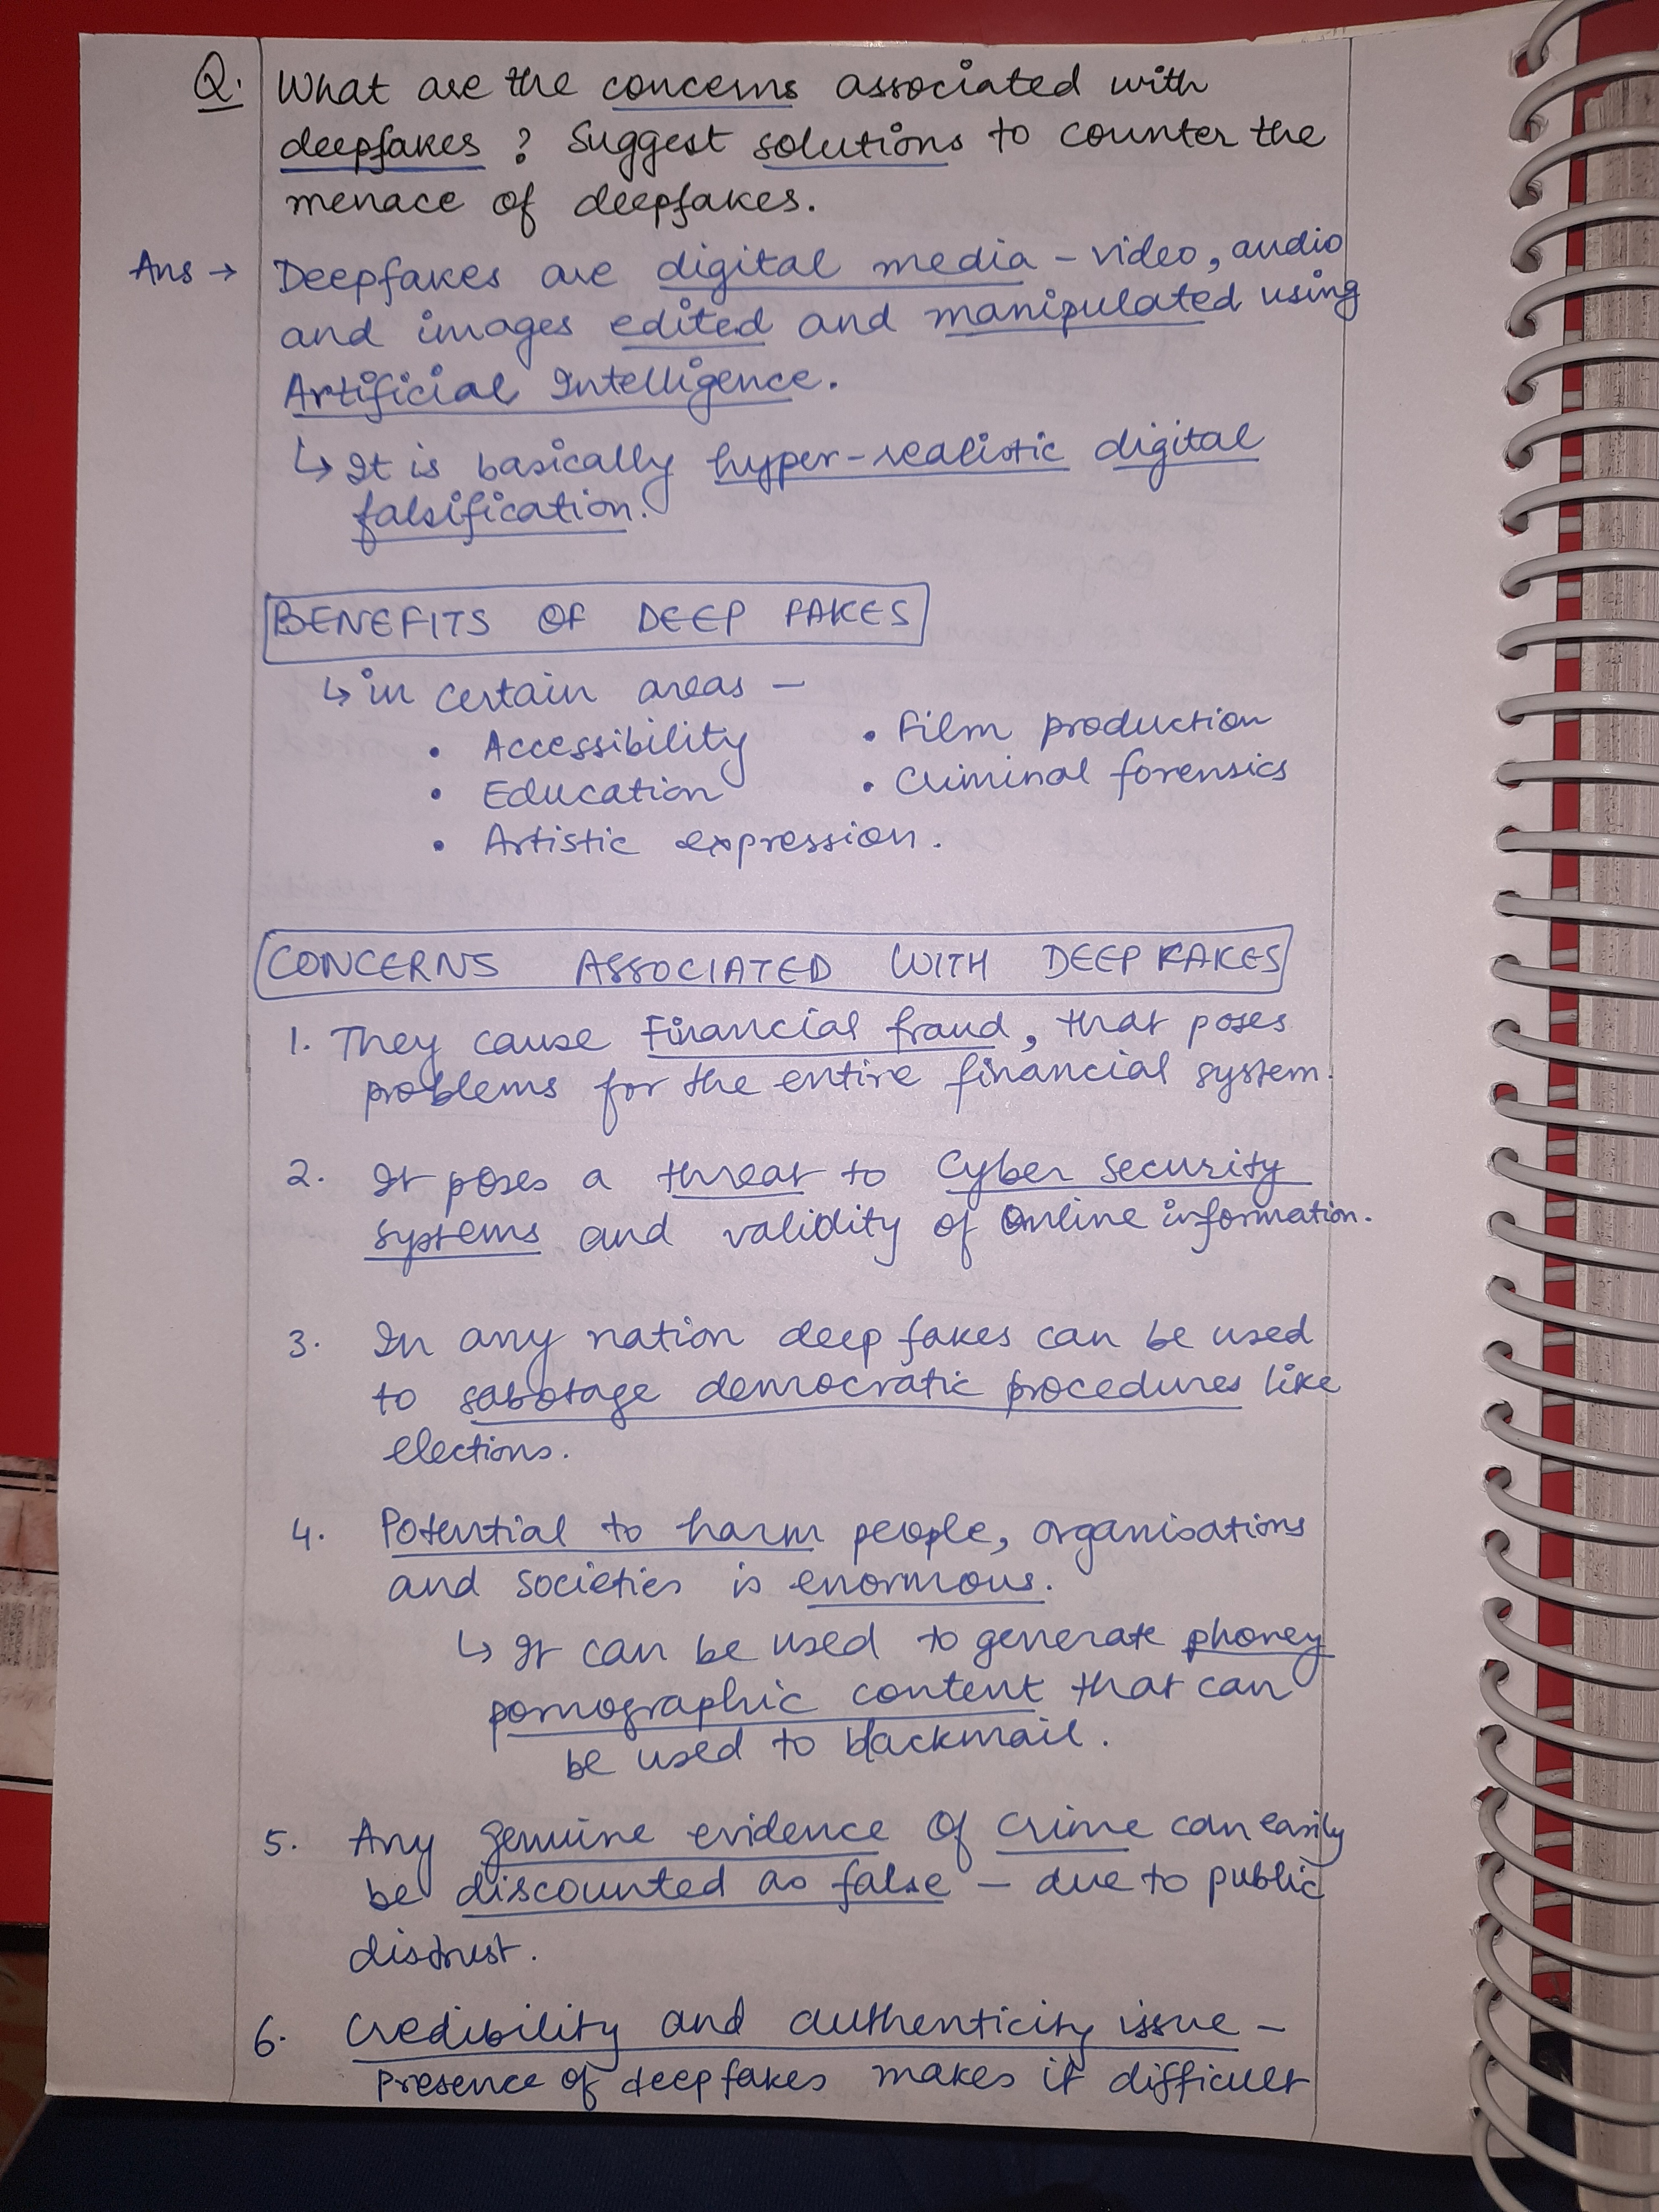 Q. What are the concerns associated with
deepfakes ? Suggest solutions to counter the
menace of deepfakes.
Ans → Deepfakes are digital media - video, audio
and images edited and manipulated using
Artificial Intelligence.
↳ It is basically hyper-realistic digital
falsification.
BENEFITS OF DEEP FAKES
↳ in certain areas -
• Accessibility
• Education
• Artistic expression.
• Film production
• Criminal forensics
CONCERNS ASSOCIATED WITH DEEP FAKES
1. They cause Financial fraud, that poses
problems for the entire financial system.
2. It poses a threat to Cyber security
systems and validity of Online information.
3. In any nation deep fakes can be used
to sabotage democratic procedures like
elections.
4. Potential to harm people, organisations
and societies is enormous.
↳ It can be used to generate phoney
pornographic content that can
be used to blackmail.
5. Any genuine evidence of crime can easily
be discounted as false - due to public
distrust.
6. Credibility and authenticity issue -
Presence of deep fakes makes it difficult